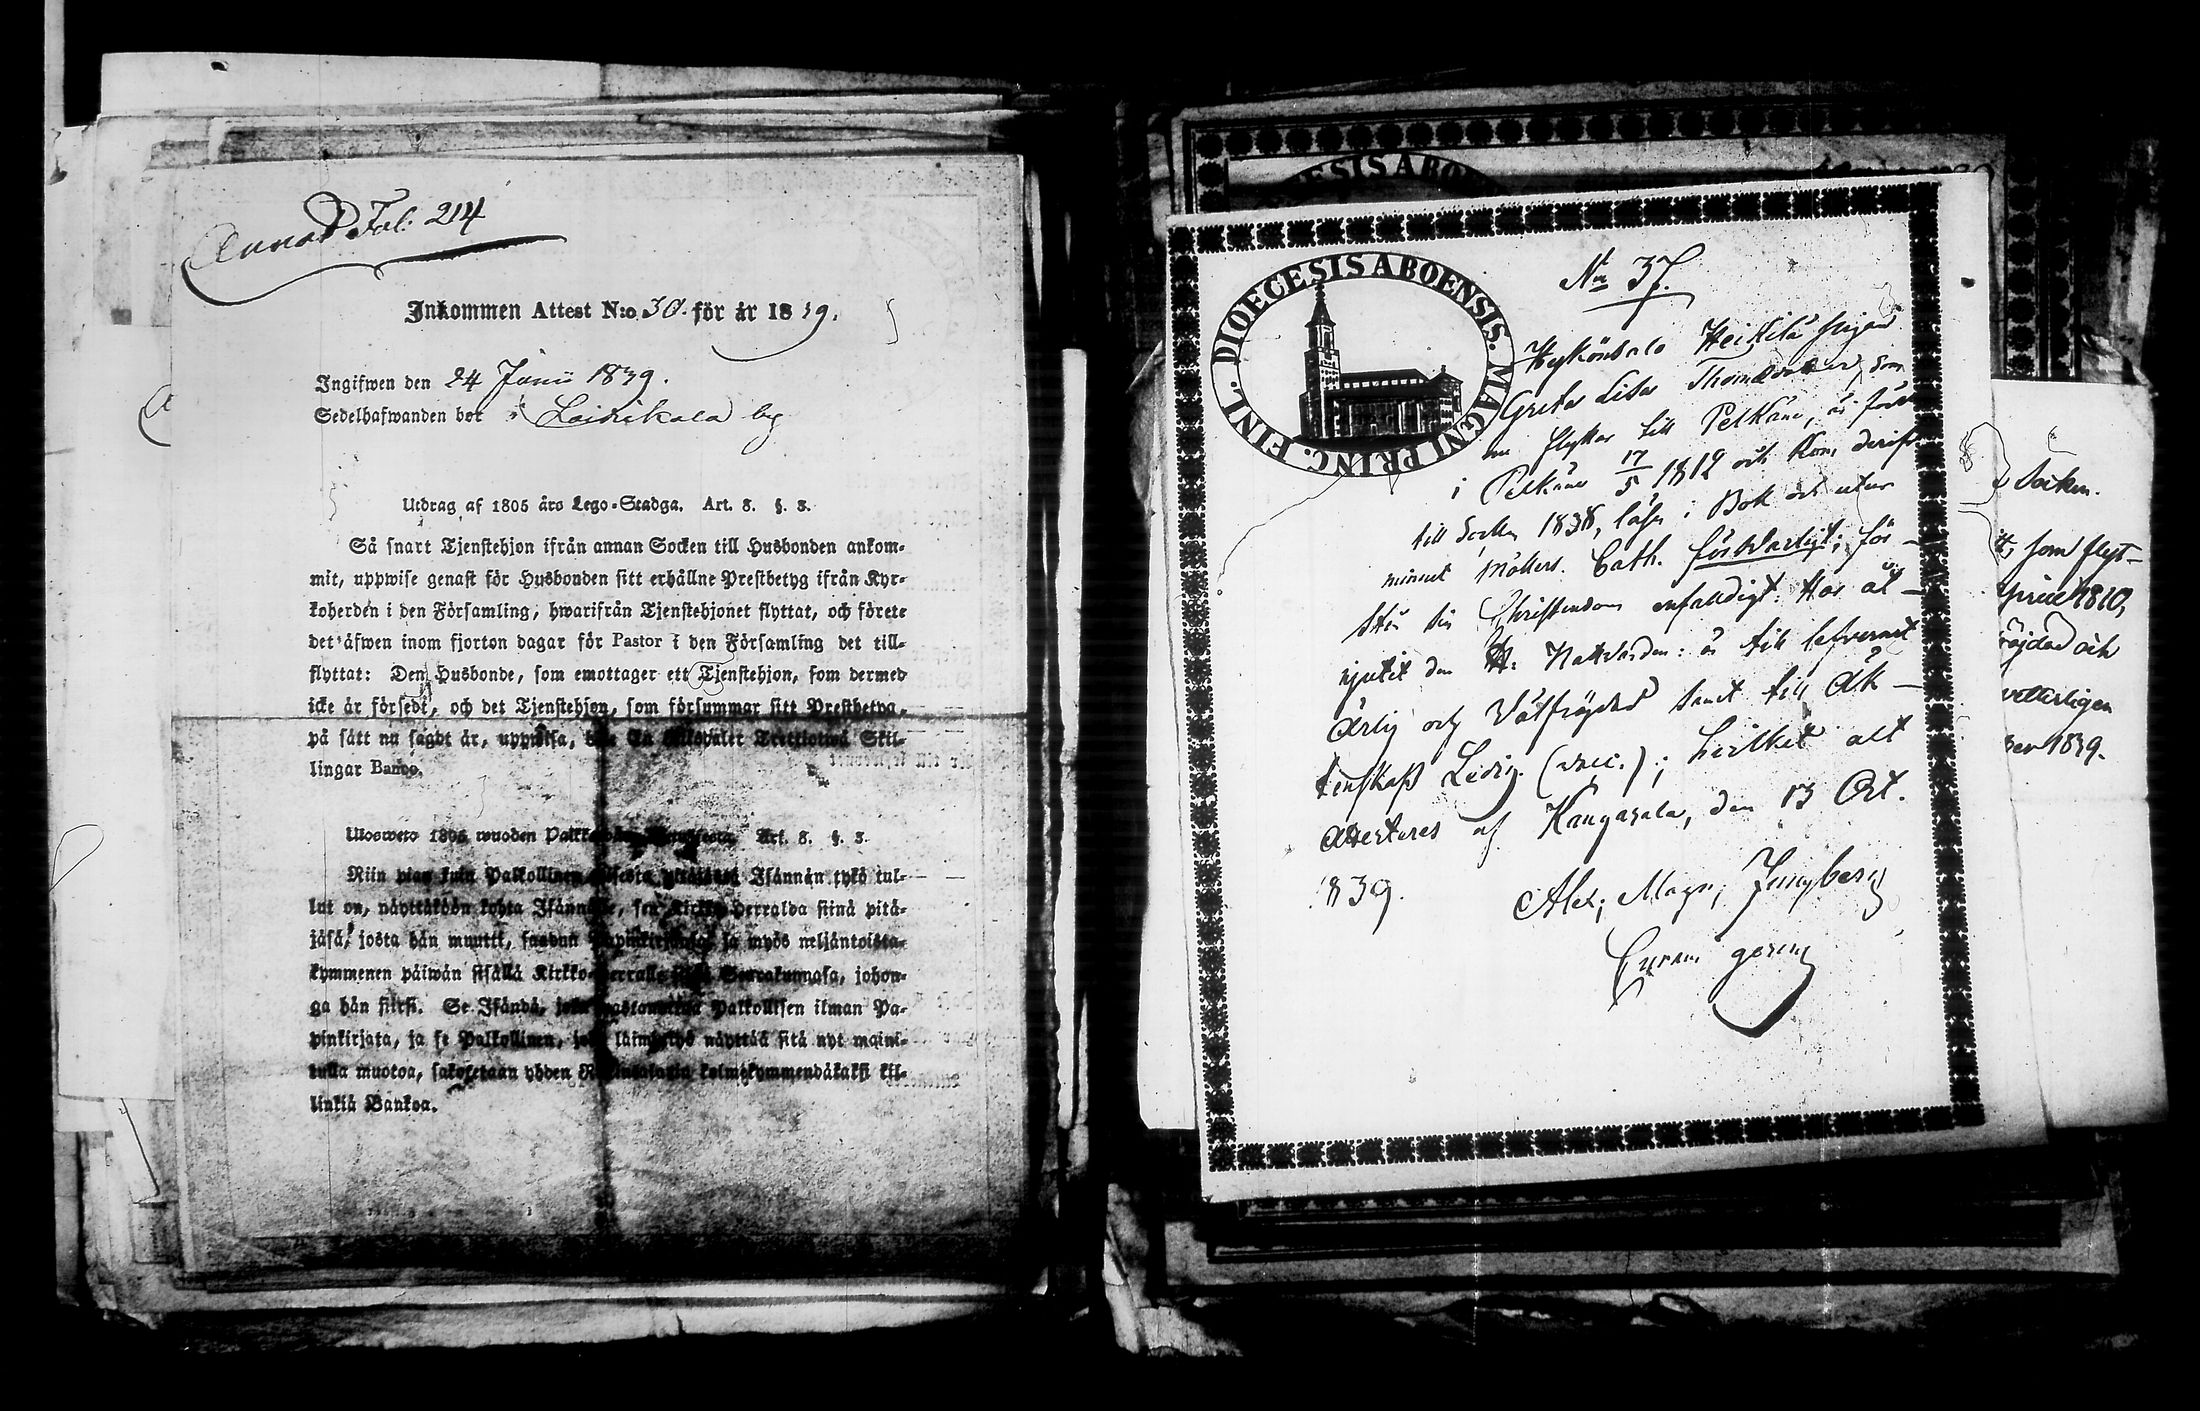 Annot. Fol: 214
Inkommen Attest N:o 30. för år 1839.
Ingifwen den 24 Junii 1839.
Sedelhafwanden bor i Laitikala by
Utdrag af 1805 års Lego-Stadga. Art. 8. §. 3.
Så snart Tjenstehjon ifrån annan Socken till Husbonden ankom-
mit, uppwise genast för Husbonden sitt erhållne Prestbetyg ifrån Kyr-
koherden i den Församling, hwarifrån Tjenstehjonet flyttat, och förete
det äfwen inom fjorton dagar för Pastor i den Församling det till-
flyttat: Den Husbonde, som emottager ett Tjenstehjon, som dermed
icke är försedt, och det Tjenstehjon, som försummar sitt Prestbetyg,
på sätt nu sagdt är, uppwisa, En Trettiotwå Skil-
lingar Banco.
Ulosweto 1805 wuoden Art. 8. §. 3.
Niin pian kuin Palkollinen Isännän tykö tul-
lut on, näyttäköön kohta Isännälle, sen Kirkko-herralda siinä pitä-
jäsä, josta hän muutti, saadun ja myös neljäntoista-
kymmenen päiwän sisällä Kirkko-herralle Seurakunnasa, johon-
ga hän siirsi. Se Isändä, joka Palkollisen ilman Pa-
pinkirjata, ja se Palkollinen, joka laiminlyö näyttää sitä nyt maini-
tulla muotoa, sakotetaan yhden kolmekymmendäkaksi kil-
lingiä Bankoa.
DIOECESIS ABOENSIS. MAGNI PRINC. FINL.
No 37.
Heikkilä pigan
Greta Lisa Thomasdotter, som
nu flyttar till Pelkäne, är född
i Pelkäne 17/5 1812 och kom derifr.
till Socken 1838, läser i Bok och utur
minnet Möllers Cath. försvarligt; för-
står sin Christendom enfaldigt: Har åt-
njutit den H: Nattvarden: är till lefvernet
Ärlig och Välfrägdad samt till Äk-
tenskap Ledig. (vacc.); hvilket alt
attesteras af Kangasala, den 13 Oct.
1839. Alex; Magn; Jungberg
Curam gerens
Socken.
som flyt-
1810,
och
1839.
ESIS ABO